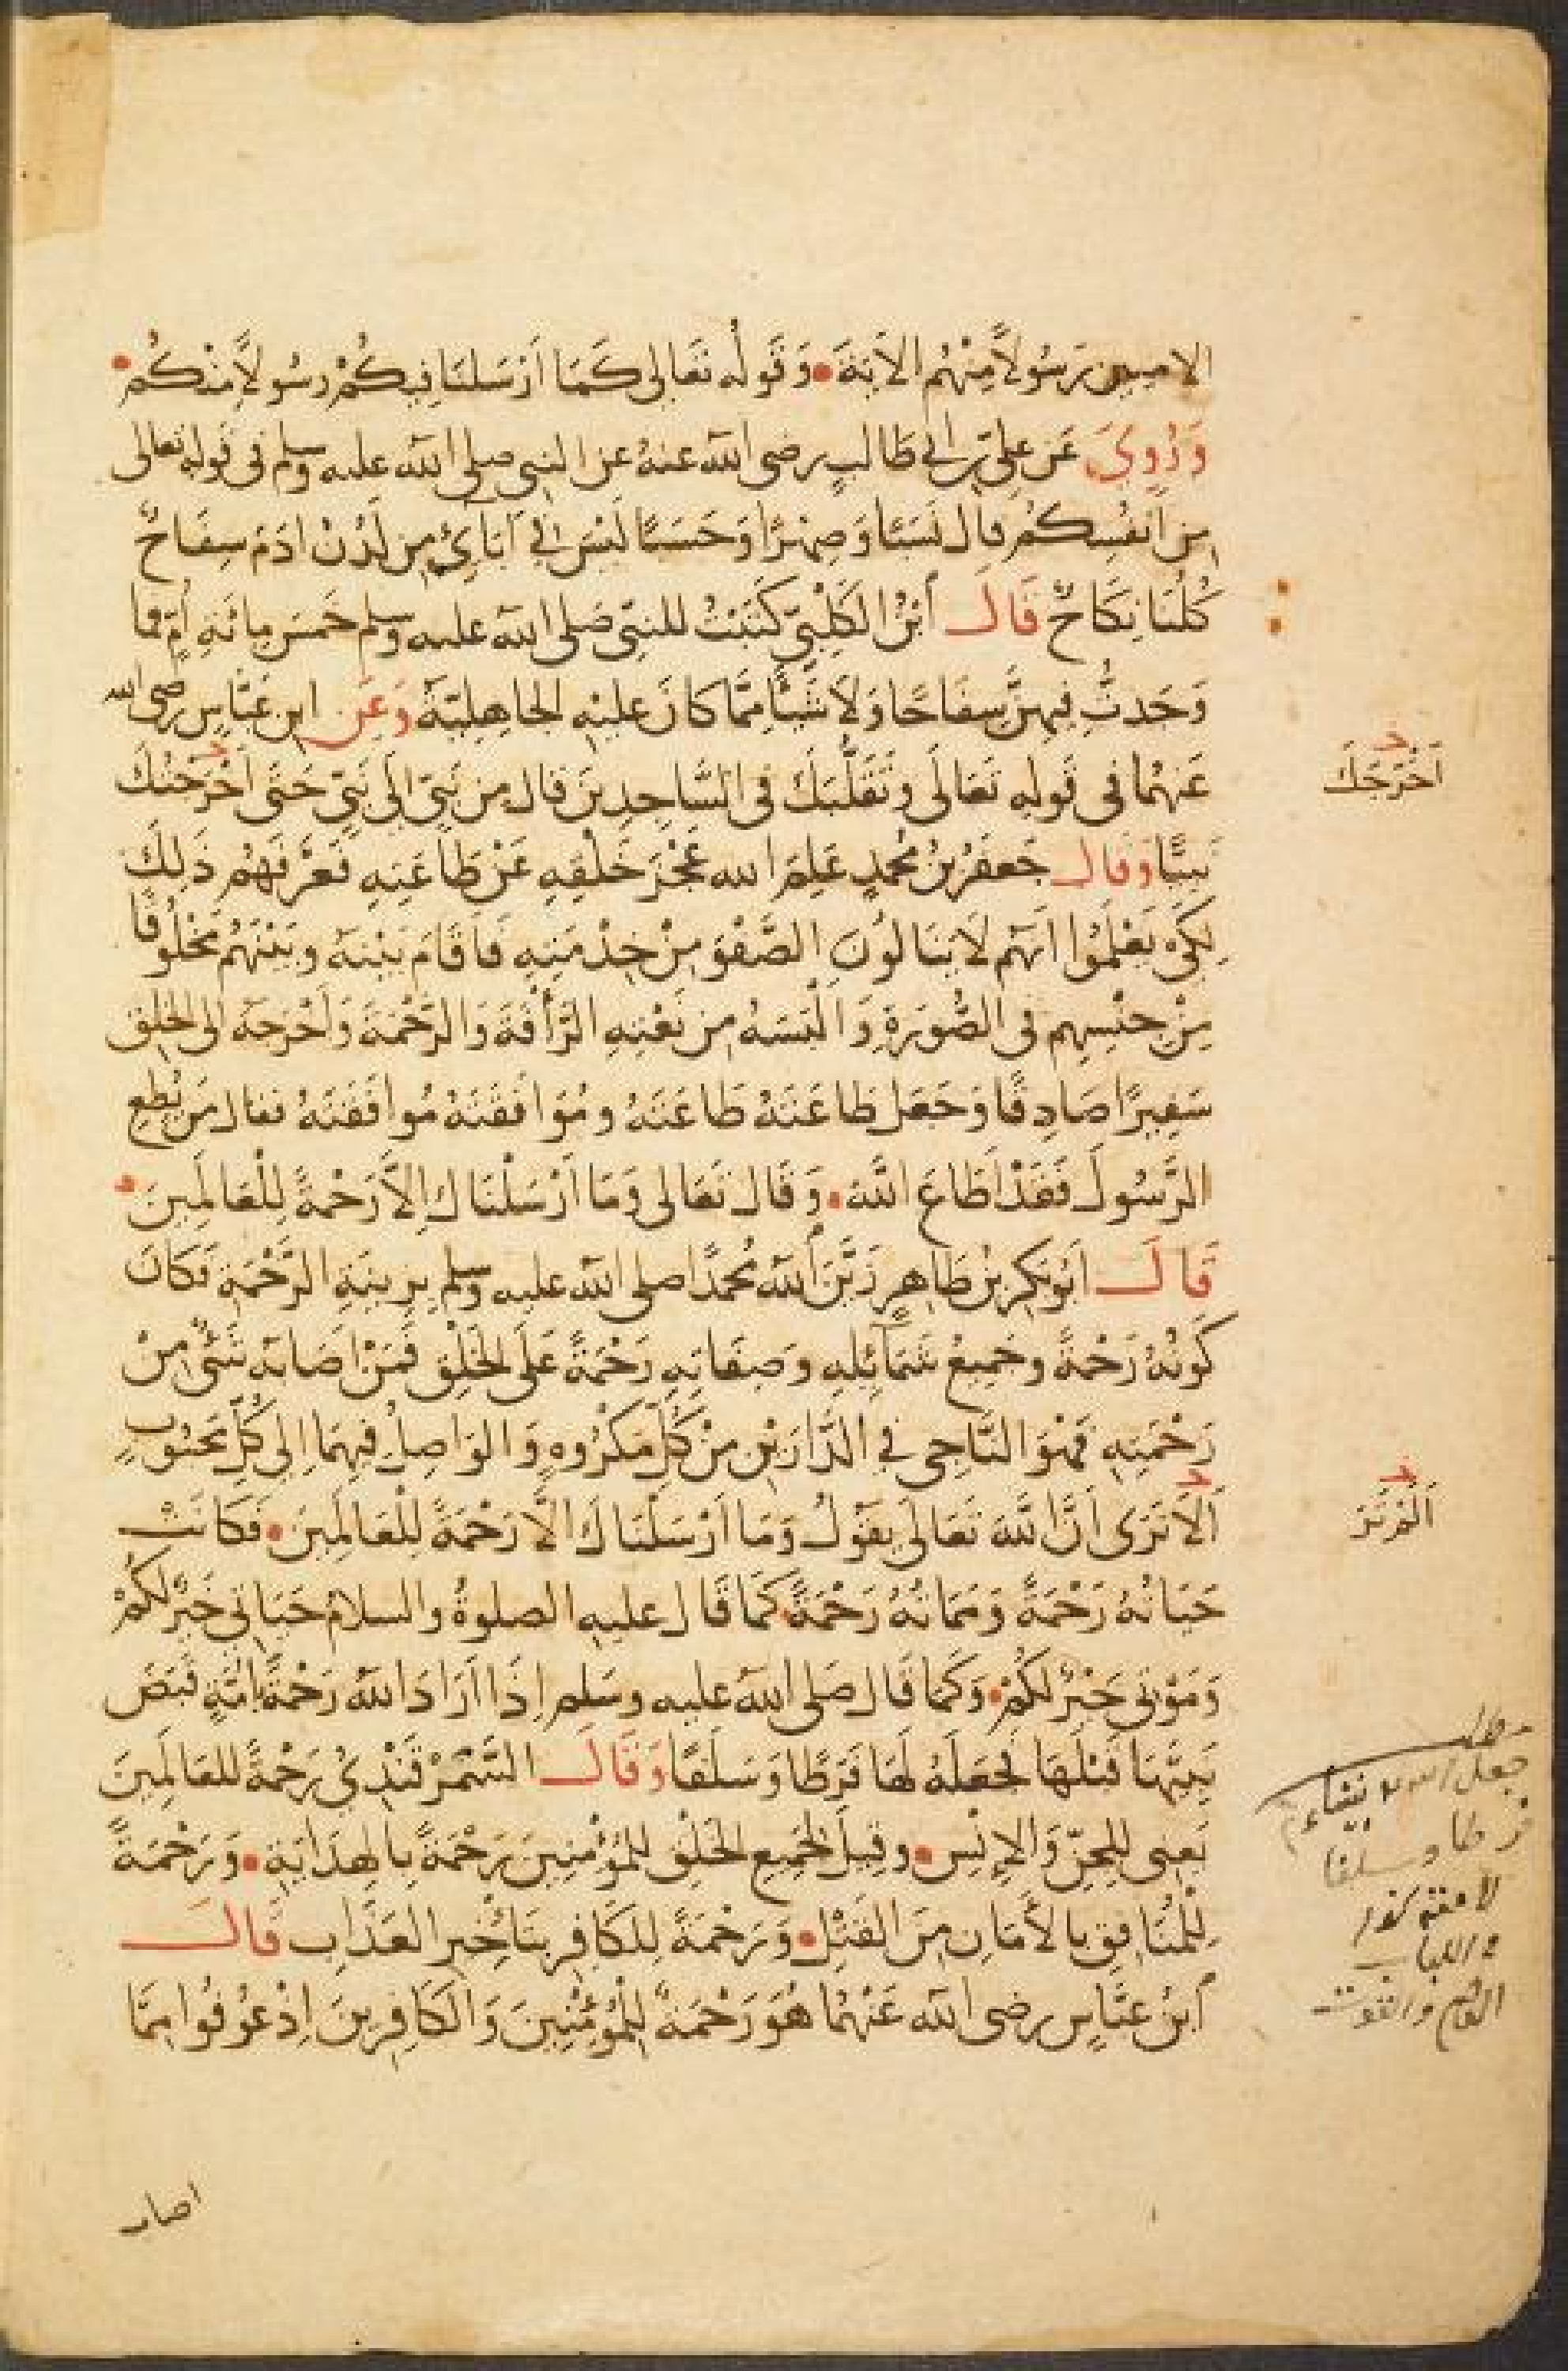 الاميين رَسُولاً مِنْهُم الاَيَةَ • وَقَولُه تَعَالى كَمَا اَرْسَلنَا فِيكُمْ رسُولاً مِنْكُم •
وَرُوِيَ عَن عَلِيّ بن ابي طَالبٍ رضى الله عنهُ عن النبى صلى الله عليه وسلم فى قوله تعالى
مِن اَنفُسِكُم قال نَسَبًا وَصِهْرًا وَحَسَبًا لَيْسَ فِي آبَائِي مِن لَدُنْ ادَمَ سِفَاحٌ
كُلُّنَا نِكَاحٌ قَالَ اَبْنُ الكَلْبِيّ كَتَبْتُ للنبِيّ صَلى الله عليه وسلم خَمسَ مِائَةِ اُمٍّ فما
وَجَدتُ فِيهِنَّ سِفَاحًا وَلاَ شَيْئًا مِمَّا كَانَ عليْهِ الجاهِلِيّةُ وَعَن ابن عَبَّاسٍ رضى الله
عَنهُما فى قَولِهِ تَعَالَى وَتَقَلُّبَكَ فى السَّاجِدِينَ قال مِن نَبِيّ اِلَى نَبِيٍّ حَتَّى اَخْرَجْتُكَ
نَبِيًّا وَقَال جَعفَرُ بنُ مُحمدٍ عَلِمَ الله عَجْزَ خَلْقِهِ عَنْ طَاعَتِهِ فعَرَّفَهُم ذَلِكَ
لِكَىْ يَعْلَمُوا اَنَّهُم لاَ يَنَالُونَ الصَّفْوَ مِنْ خِدْمَتِهِ فَاَقَامَ بَيْنَهُ وبَيْنَهُمْ مَخْلُوقًا
مِنْ جِنْسِهِم فى الصُّورَةِ وَاَلْبَسَهُ مِن نَعْتِهِ الرَّأفَةَ وَالرَّحْمَةَ وَاَخْرَجَهُ الى الخلق
سَفِيرًا صَادِقًا وَجَعَل طَاعَتَهُ طَاعَتَهُ ومُوَافَقَتَهُ مُوافَقَتَهُ فقال مَن يُطِعِ
الرَّسُولَ فَقَدْ اَطَاعَ اللَّهَ • وَقَال تَعَالى وَمَا اَرْسَلْنَاك اِلاَّ رَحْمَةً لِلْعَالَمِينَ •
قَالَ اَبُو بَكرِ بنُ طَاهِرٍ زَيَّنَ اللهُ مُحمَّدًا صلى الله عليه وسلم بزِينَةِ الرَّحْمَةِ فَكَانَ
كَونُهُ رَحْمَةً وجَمِيعُ شَمَآئِلِهِ وَصِفَاتِهِ رَحْمَةً عَلَى الخَلْقِ فَمَنْ اصَابَه شَىْءٌ مِنْ
رَحْمَتِهِ فَهُوَ النَّاجِى فِي الدَّارَيْنِ مِنْ كُلِّ مَكْرُوهٍ وَالوَاصِلُ فِيهِمَا اِلى كُلِّ مَحبُوبٍ
اَلاَ تَرَى اَنَّ اللَّهَ تَعَالَى يقُولُ وَمَا اَرْسَلْنَاكَ اِلاَّ رَحْمَةً لِلْعَالَمِينَ • فَكَانَتْ
حَيَاتُهُ رَحْمَةً وَمَمَاتُهُ رَحْمَةً كَمَا قَال عليهِ الصلوةُ والسلامُ حَيَاتِي خَيْرٌ لكُمْ
وَمَوْتى خَيْرٌ لَكُمْ • وَكَمَا قَال صَلى اللهُ عليه وسَلم اِذَا اَرَادَ اللهُ رَحْمَةً بِاُمَّةٍ قَبَضَ
نَبِيَّهَا قَبْلَهَا فَجَعَلَهُ لَهَا فَرَطًا وَسَلَفًا وَقَالَ السَّمَرْقَنْدِىُّ رَحْمَةً للعَالَمِينَ
يَعنِى للجِنِّ وَالاِنْسِ • وقِيلَ لجَمِيعِ الخَلْقِ للمُؤْمِنِينَ رَحْمَةً بِالهِدَايَةِ • وَرَحْمَةً
لِلْمُنَافِقِ بالأَمَانِ مِنَ القَتْلِ • وَرَحْمَةً لِلكَافِر بتَاخِيرِ العَذَابِ قَالَ
اَبْنُ عبَّاسٍ رضى الله عَنْهُمَا هُوَ رَحْمَةٌ لِلْمُؤمِنِينَ وَالكَافِرِينَ اِذْ عُوفُوا مِمَّا
اصاب
اَخْرَجَكَ
اَلَمْ تَرَ
مطلب
جعل الله الانبياء
فرطا وسلفا